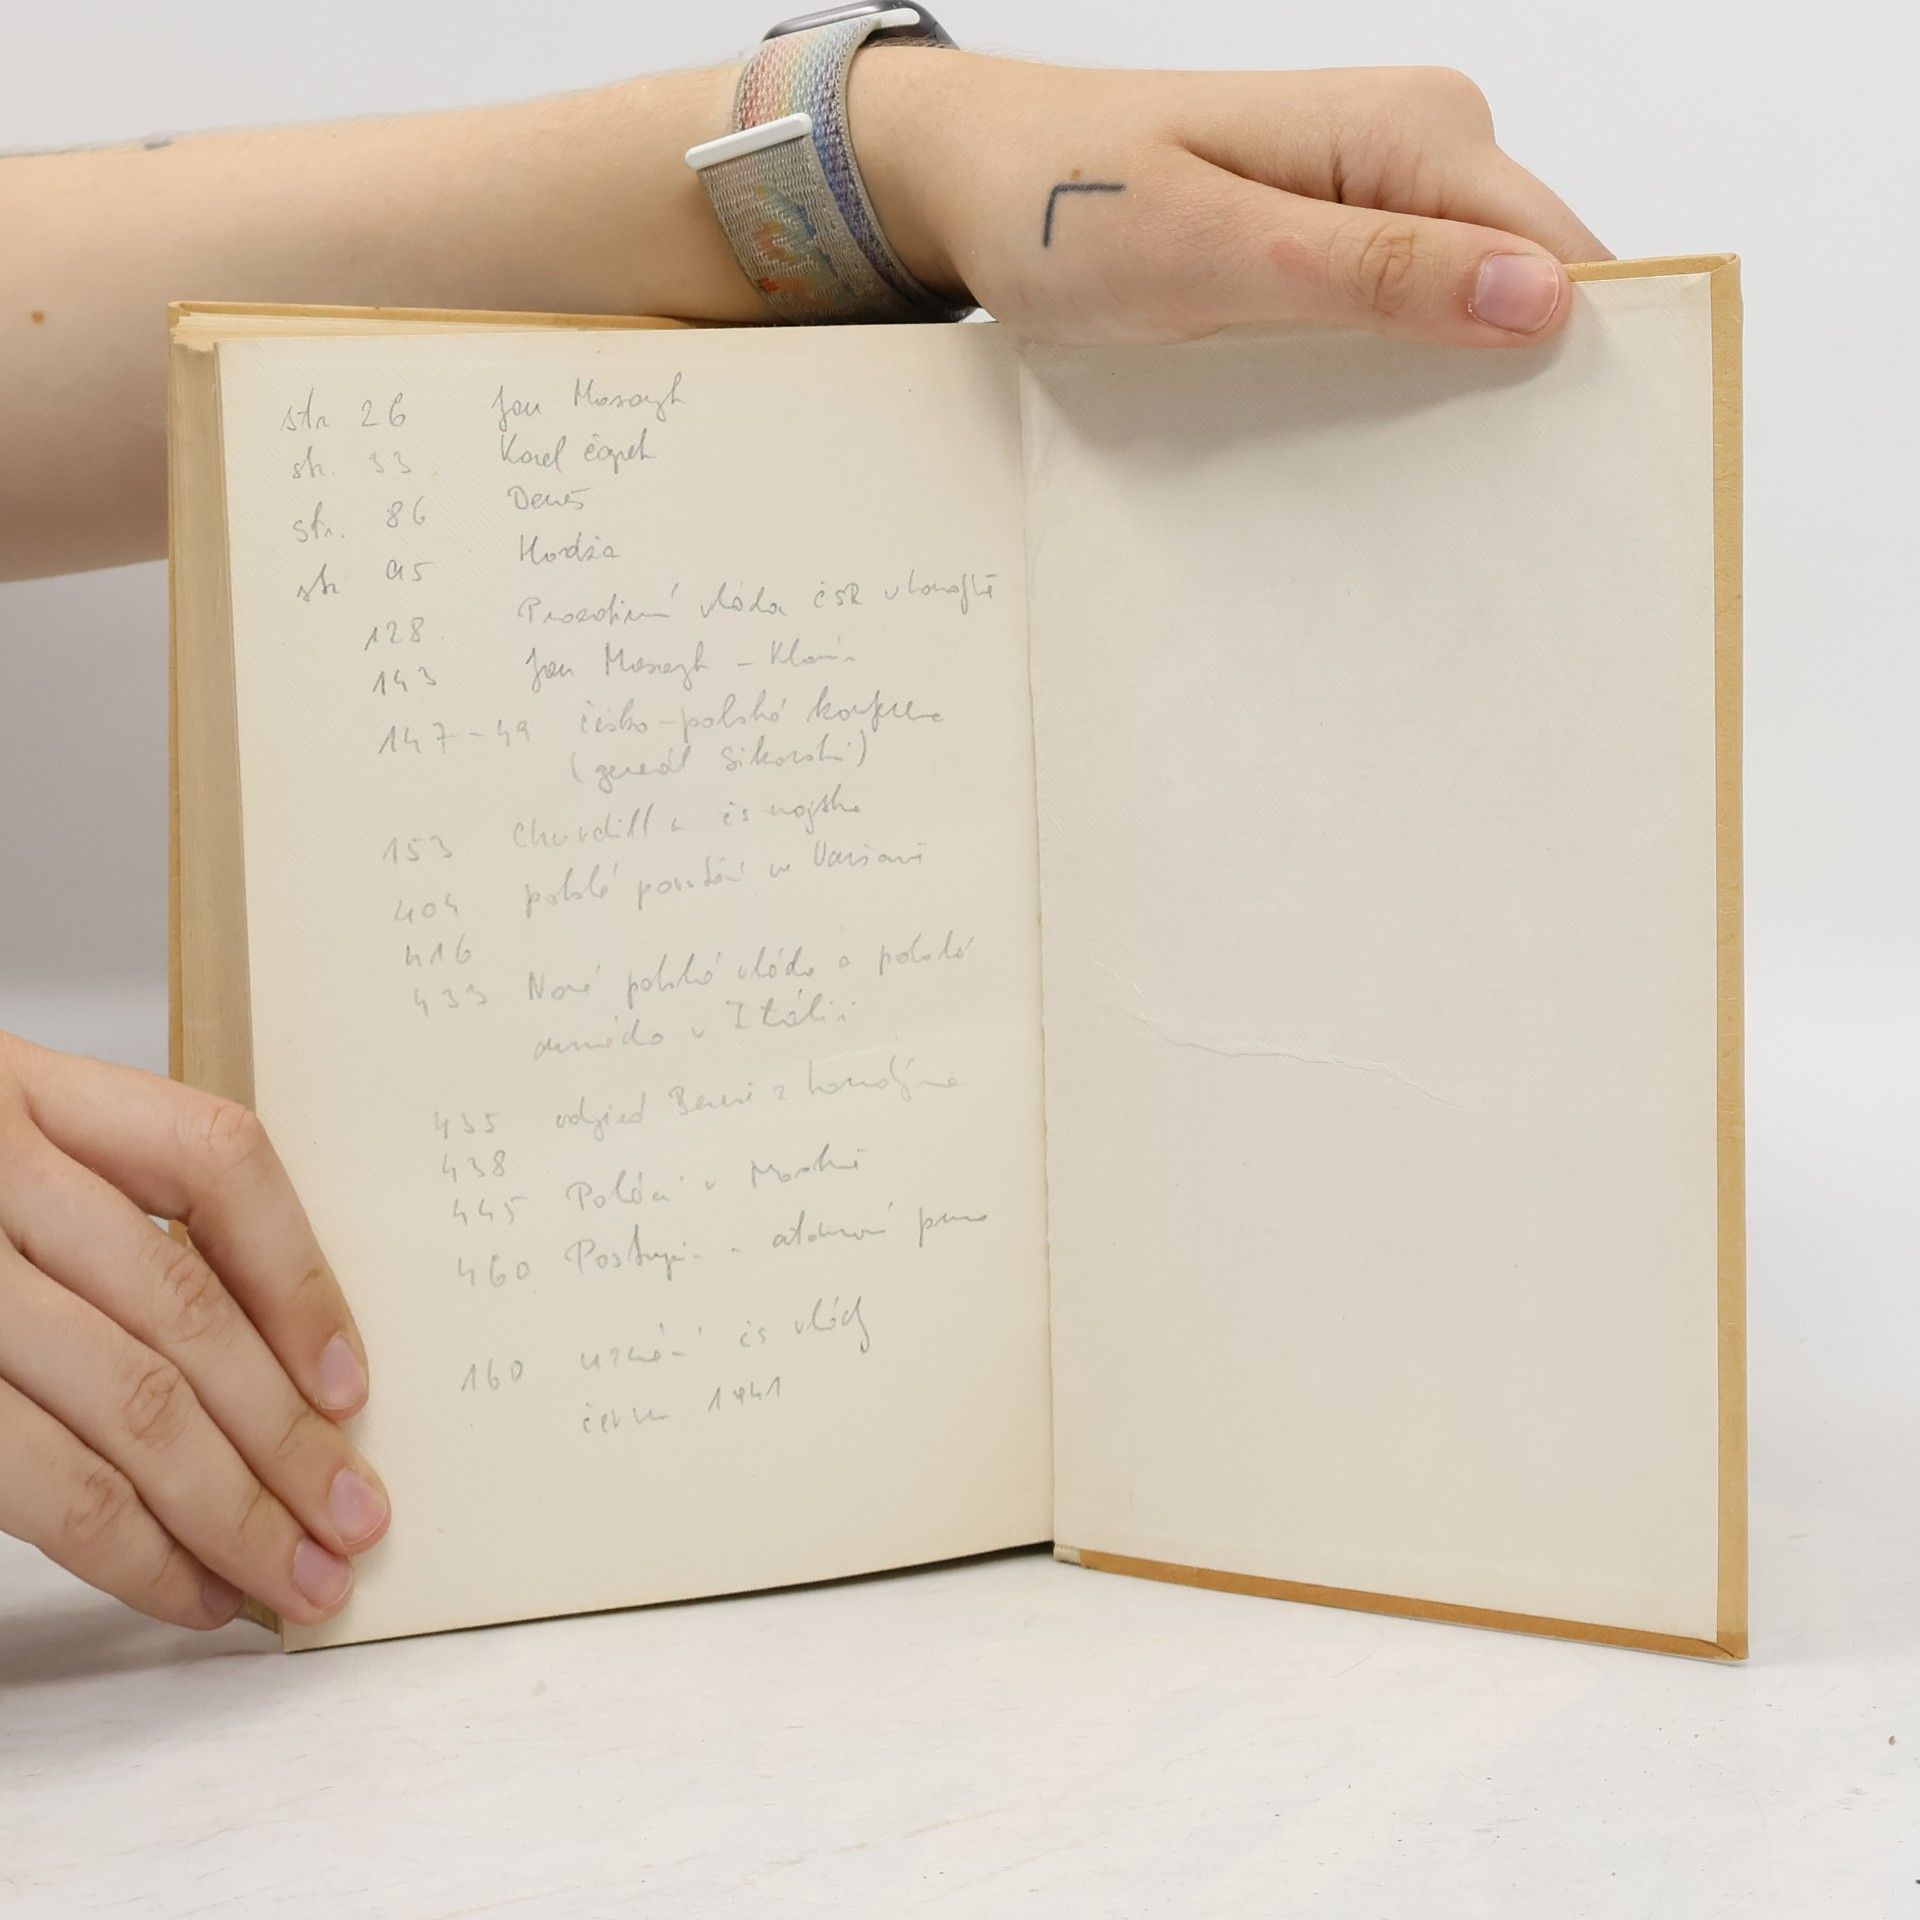 str 26 Jan Masaryk
str. 33 Karel Čapek
str. 86 Beneš
str 95 Hodža
128 Prozatímní vláda ČSR v
143 Jan Masaryk -
147-49 česko-polská konference
(generál Sikorski)
153 Churchill a čs vojska
404 polské povstání ve Varšavě
416
433 Nová polská vláda a polská
armáda v Itálii
435 odjezd Beneše z Londýna
438
445 Poláci v Moskvě
460 Postupim a atomová puma
160 uznání čs vlády
červen 1941